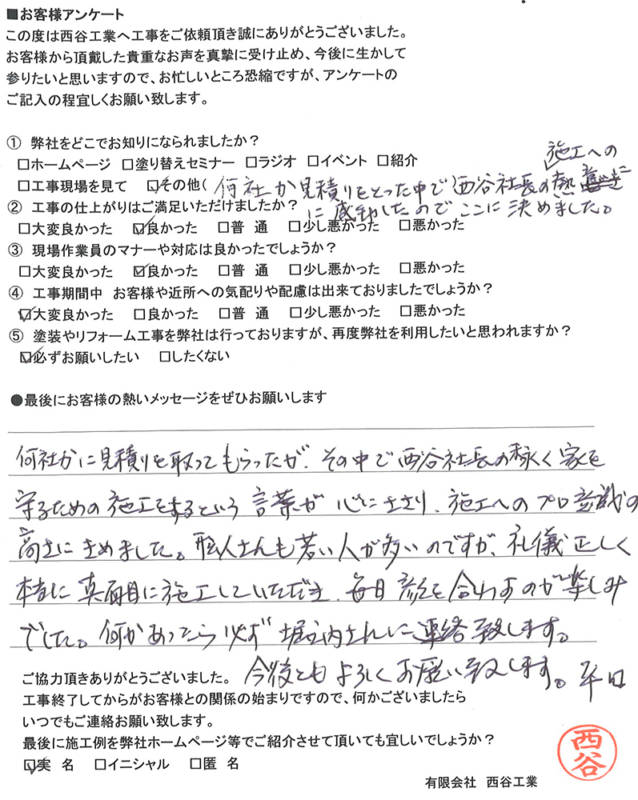 ■お客様アンケート
この度は西谷工業へ工事をご依頼頂き誠にありがとうございました。
お客様から頂戴した貴重なお声を真摯に受け止め、今後に生かして
参りたいと思いますので、お忙しいところ恐縮ですが、アンケートの
ご記入の程宜しくお願い致します。
① 弊社をどこでお知りになられましたか？
□ホームページ □塗り替えセミナー □ラジオ □イベント □紹介
施工への
□工事現場を見て ☑その他( 何社か見積りをとった中で西谷社長の熱意に
② 工事の仕上がりはご満足いただけましたか？
に感動したのでここに決めました。
□大変良かった ☑良かった □普 通 □少し悪かった □悪かった
③ 現場作業員のマナーや対応は良かったでしょうか？
□大変良かった ☑良かった □普 通 □少し悪かった □悪かった
④ 工事期間中 お客様や近所への気配りや配慮は出来ておりましたでしょうか？
☑大変良かった □良かった □普 通 □少し悪かった □悪かった
⑤ 塗装やリフォーム工事を弊社は行っておりますが、再度弊社を利用したいと思われますか？
☑必ずお願いしたい □したくない
●最後にお客様の熱いメッセージをぜひお願いします
何社かに見積りを取ってもらったが、その中で西谷社長の永く家を
守るための施工をするという言葉が心にささり、施工へのプロ意識の
高さにきめました。職人さんも若い人が多いのですが、礼儀正しく
本当に真面目に施工していただき、毎日顔を合わすのが楽しみ
でした。何かあったら必ず堀之内さんに連絡致します。
ご協力頂きありがとうございました。 今後ともよろしくお願い致します。
工事終了してからがお客様との関係の始まりですので、何かございましたら
いつでもご連絡お願い致します。
最後に施工例を弊社ホームページ等でご紹介させて頂いても宜しいでしょうか？
☑実 名 □イニシャル □匿 名
西谷
有限会社 西谷工業